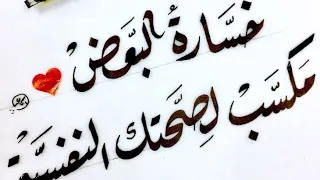 خسارةُ البَعضْ
مَكسَبْ لِصِحَّتك النفسيَّة